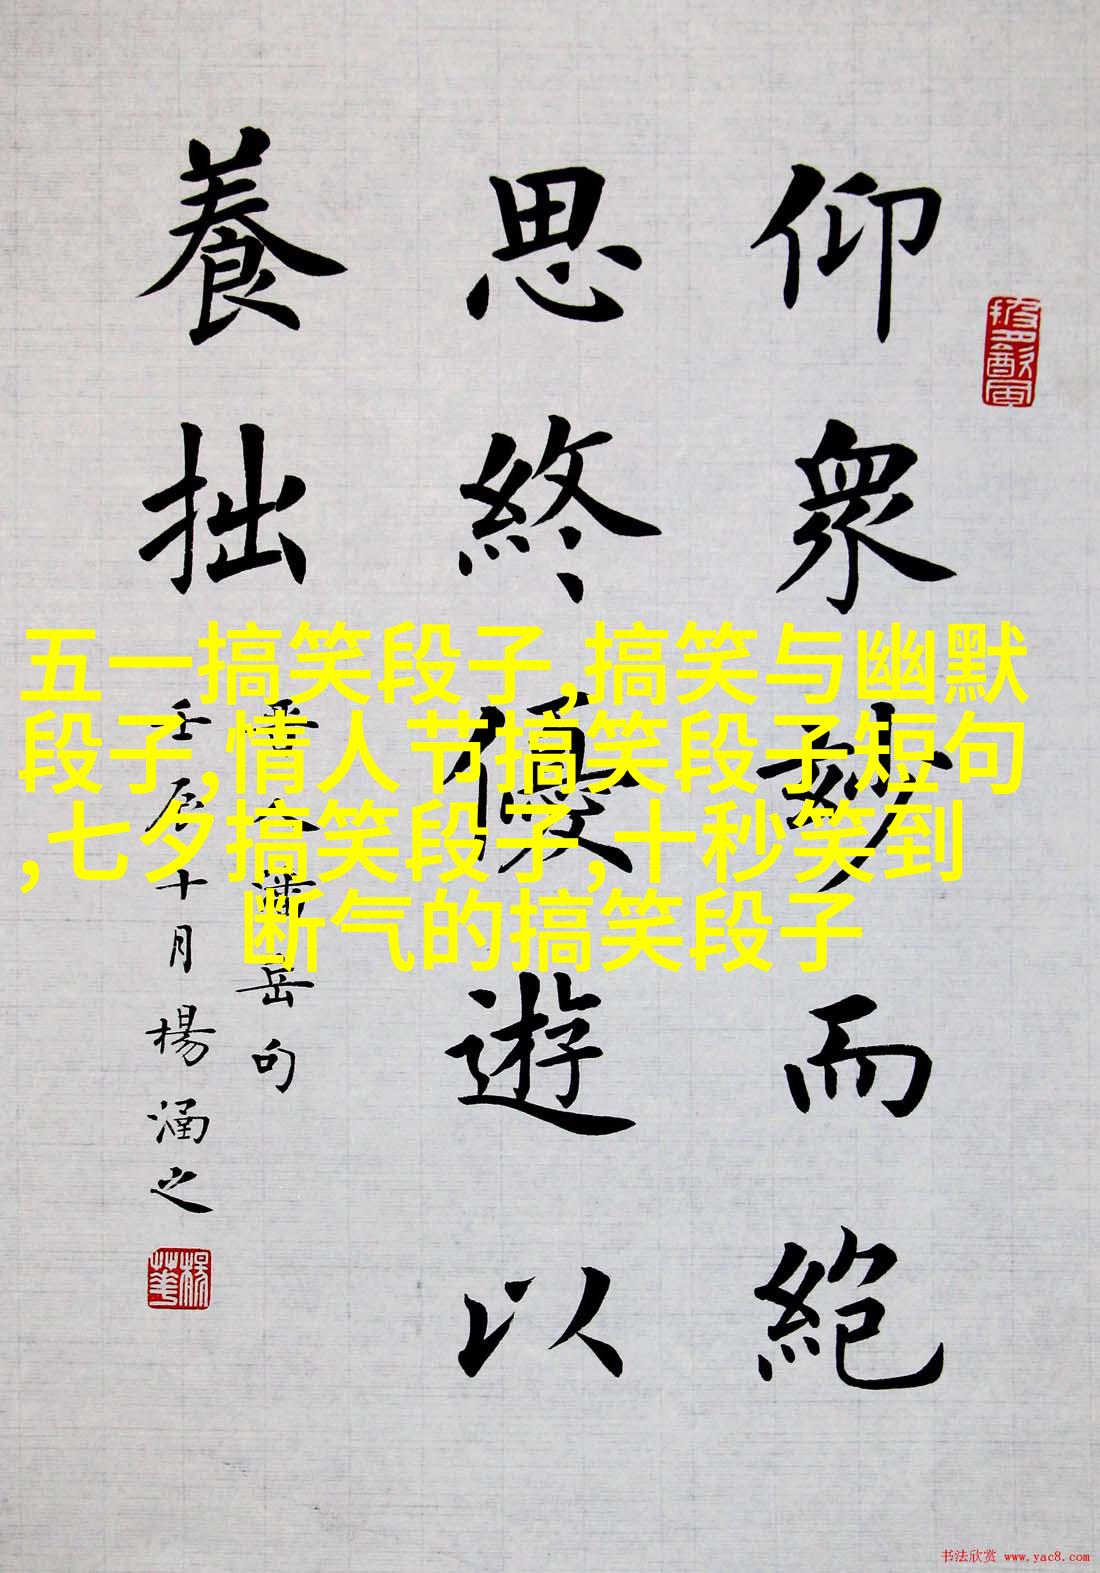 仰眾玅而絶
思終優遊以
養拙
晋人潘岳句
壬辰十月楊涵之
五一搞笑段子,搞笑与幽默
段子,情人节搞笑段子短句
,七夕搞笑段子,十秒笑到
断气的搞笑段子
书法欣赏 www.yac8.com